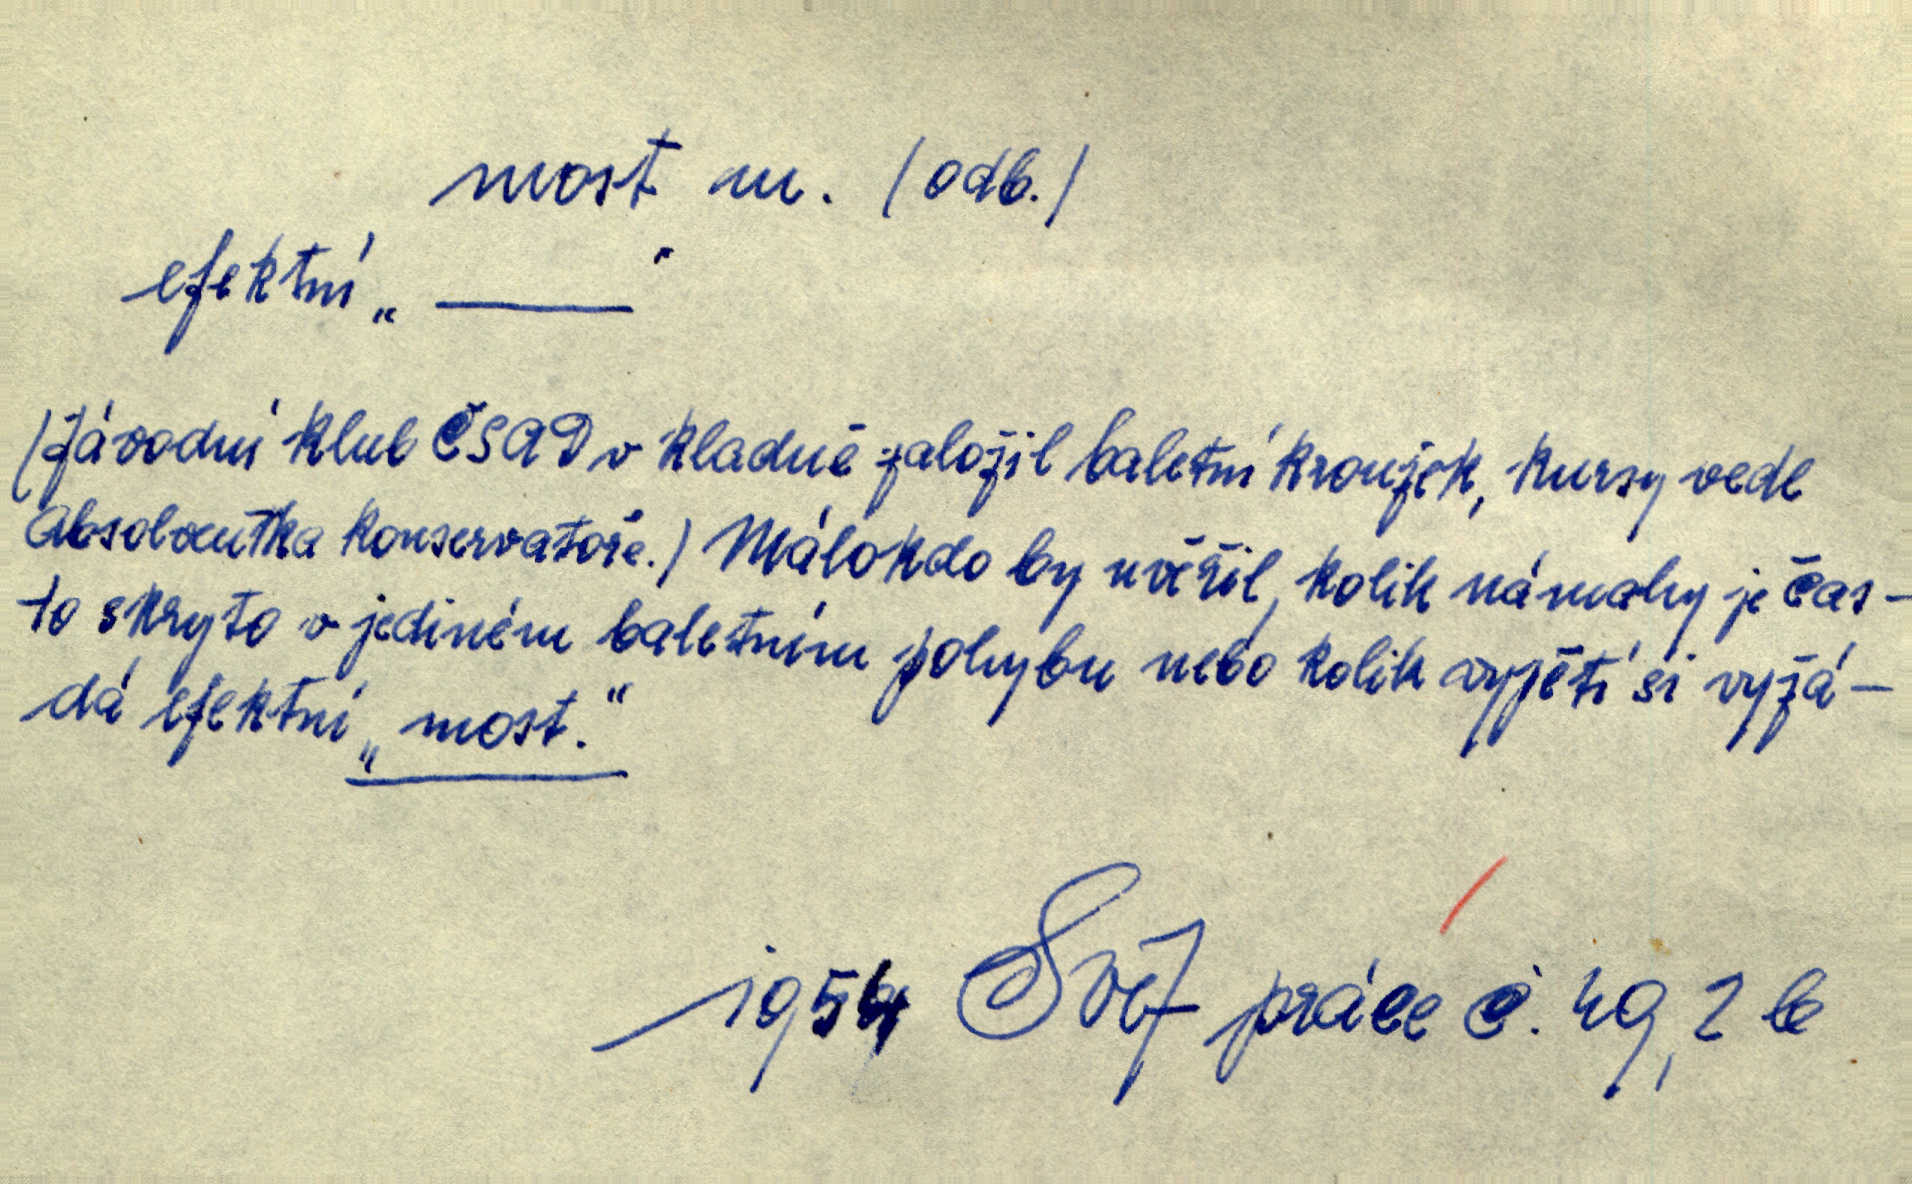 most m. (odb.)
efektní „ —— "
(Závodní klub ČSAD v Kladně založil baletní kroužek, kursy vede
absolventka konservatoře.) Málokdo by uvěřil, kolik námahy je čas-
to skryto v jediném baletním pohybu nebo kolik vypětí si vyžá-
dá efektní „most."
1954 Svět práce č. 49, 2 b